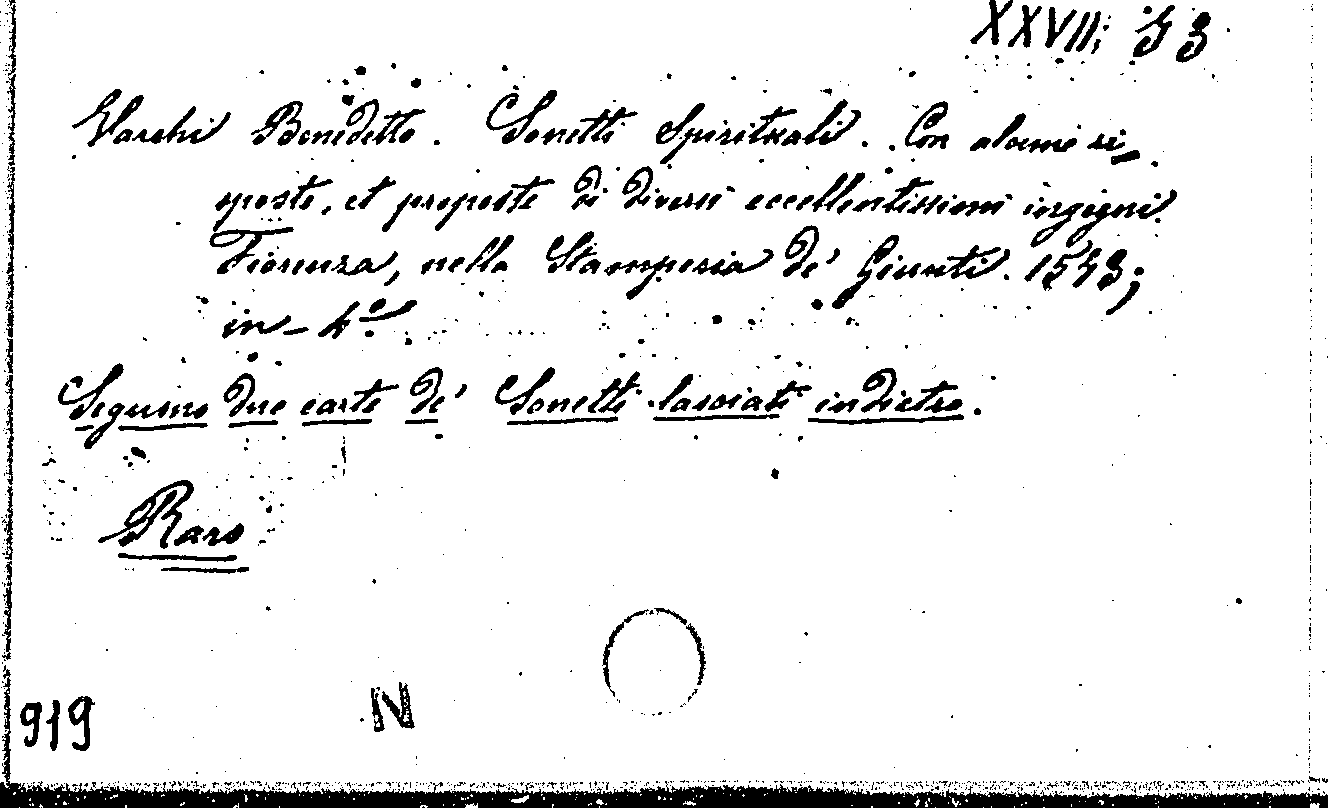 XXVII; 53
Varchi Benedetto. Sonetti Spirituali. Con alcune ri_
sposte, et proposte di diversi eccellentissimi ingegni.
Fiorenza, nella Stamperia de' Giunti. 1573;
in-4.º
Seguono due carte de' Sonetti lasciati indietro.
Raro
919 N